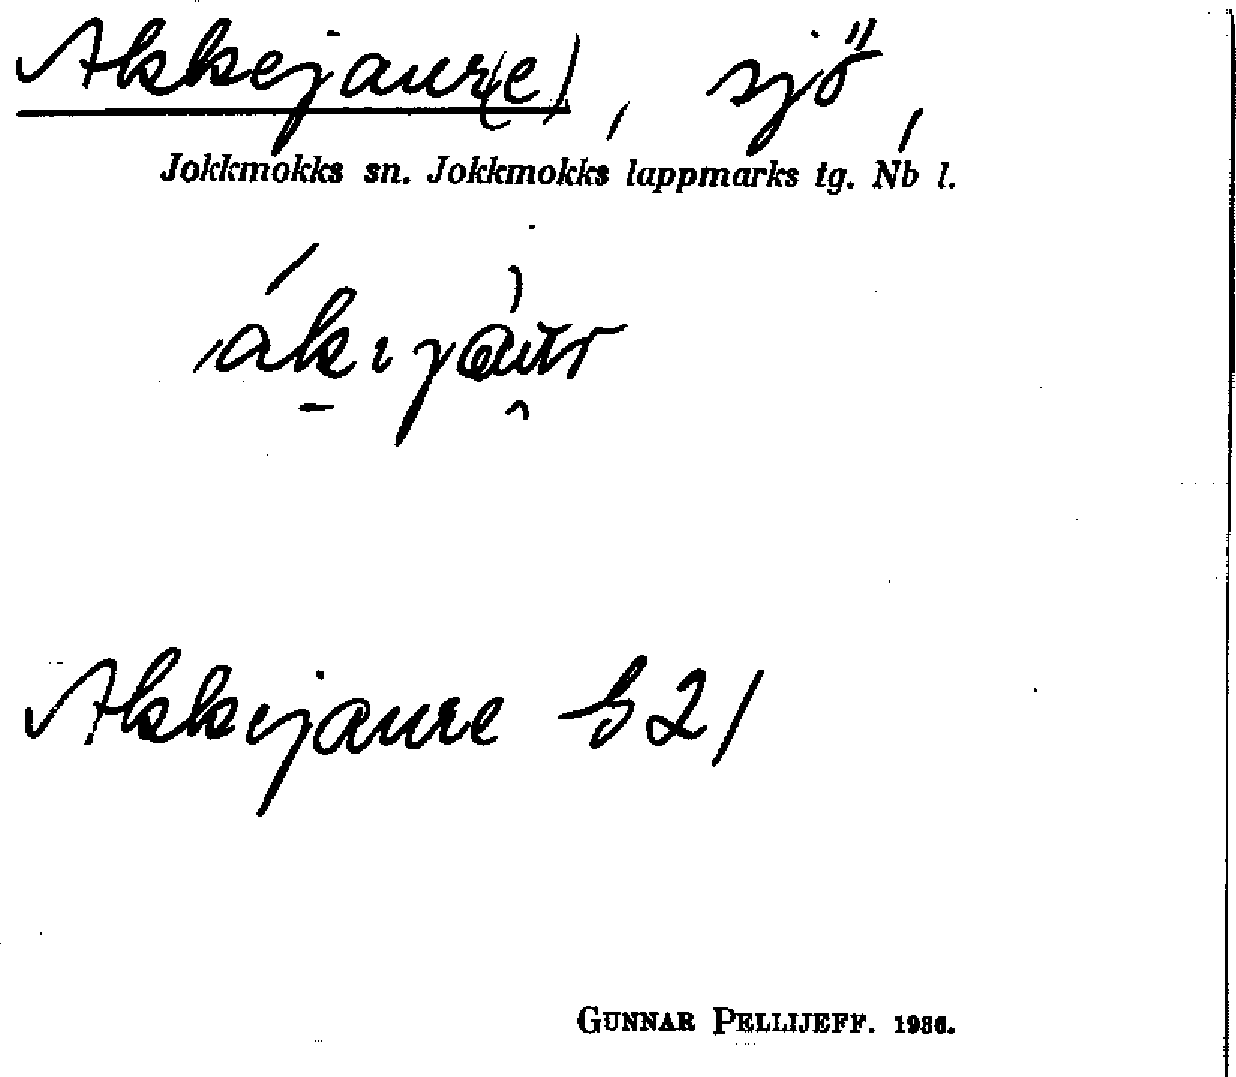 Akkejaur(e), sjö,
Jokkmokks sn. Jokkmokks lappmarks tg. Nb l.
Akkejaure b2/
GUNNAR PELLIJEFF. 1936.